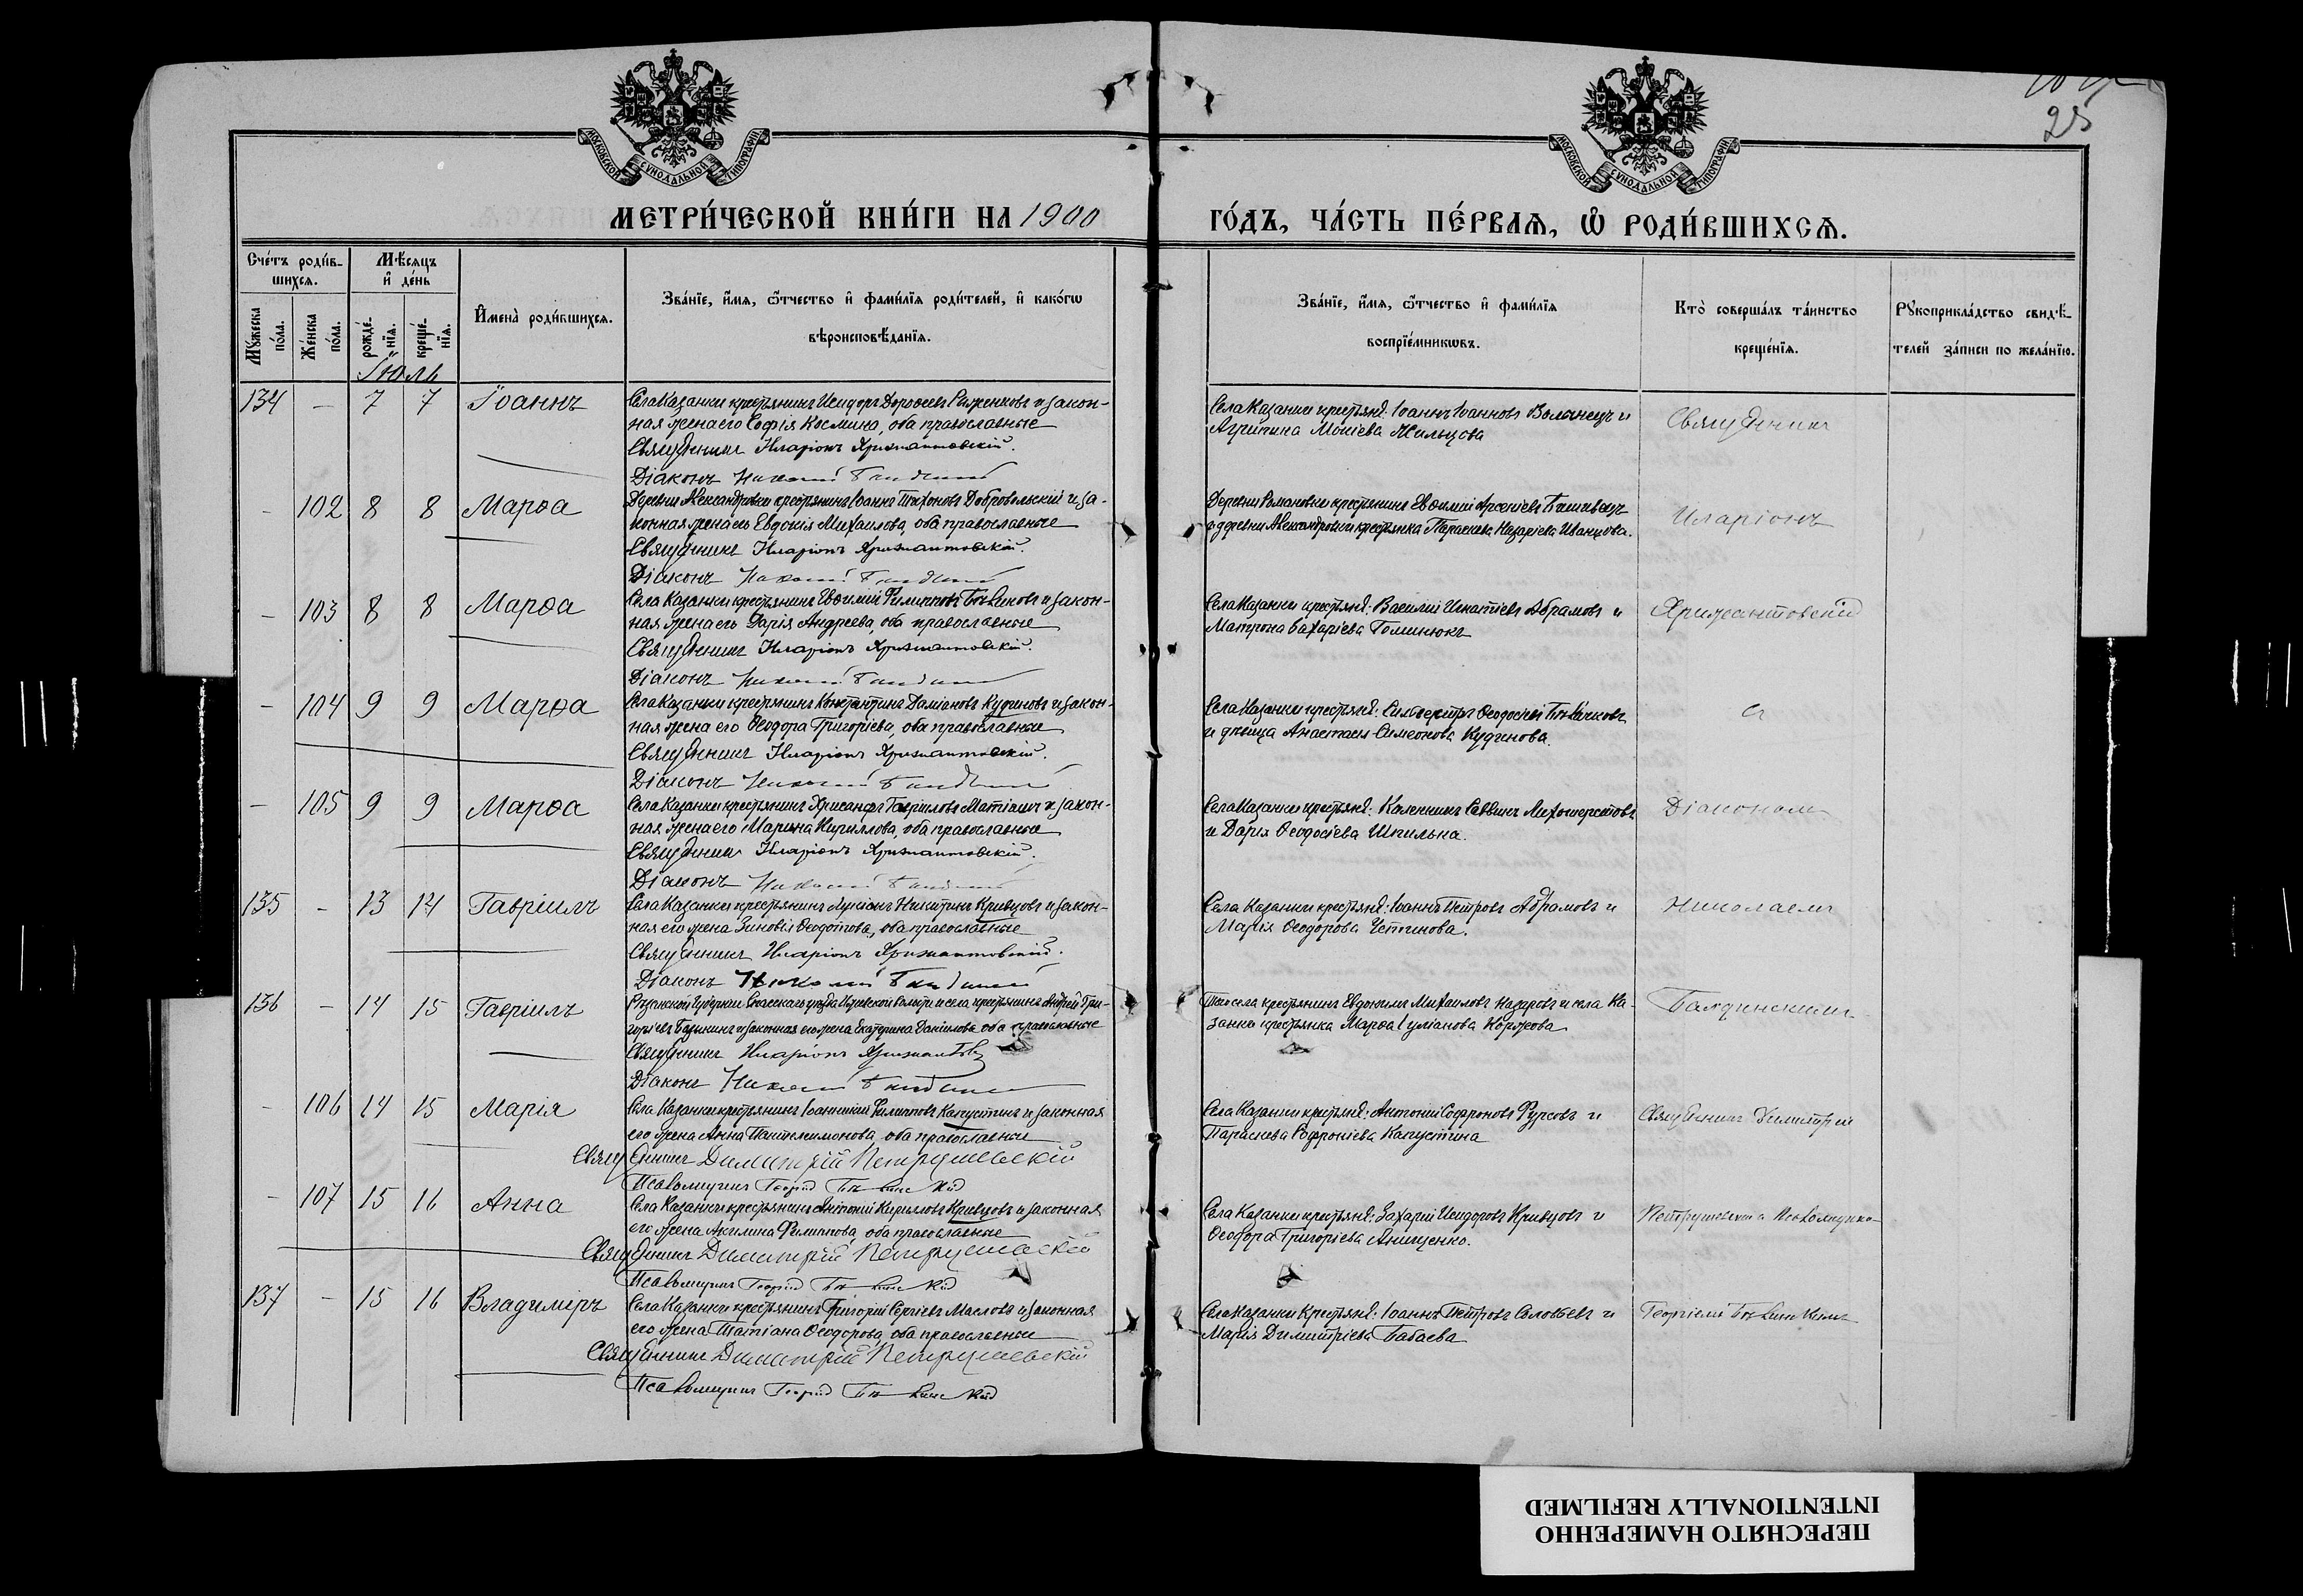 25
МОСКОВСКОЙ СУНОДАЛЬНОЙ ТИПОГРАФІИ
МОСКОВСКОЙ СУНОДАЛЬНОЙ ТИПОГРАФІИ
МЕТРИ́ЧЕСКОЙ КНИ́ГИ НА 1900
ГО́ДЪ, ЧА́СТЬ ПЕ́РВАѦ, Ѡ҆ РОДИ́ВШИХСѦ.
Сче́тъ роди́вшихсѧ.
Мѣ́сяцъ и҆ де́нь
Мꙋ́жеска по́ла.
Же́нска по́ла.
рожде́нїѧ.
креще́нїѧ.
И҆мена̀ роди́вшихсѧ.
Зва́нїе, и҆́мѧ, ѻ҆́тчество и҆ фами́лїѧ роди́телей, и҆ како́гѡ
вѣроисповѣ́данїѧ.
Зва́нїе, и҆́мѧ, ѻ҆́тчество и҆ фами́лїѧ
воспрїе́мникѡвъ.
Кто̀ соверша́лъ та́инство
креще́нїѧ.
Рꙋкоприкла́дство свидѣ́-
телей за́писи по жела́нїю.
Іюль
134 – 7 7 Іоаннъ
Села Казанки крестьянинъ Исидоръ Дорофеевъ и закон-
ная жена его Софія Космина, оба православные
Священникъ Иларіонъ Хрисантовскій.
Діаконъ Николай
Села Казанки крестьяне: Іоаннъ Іоанновъ Волынецъ и
Агрипина Моисіева Жильцова
Священникъ
– 102 8 8 Марѳа
Деревни Александровки крестьянинъ Іоаннъ Тихоновъ Добровольскій и за-
конная жена его Евдокія Михаилова, оба православные
Священникъ Иларіонъ Хрисантовскій.
Діаконъ Николай
Деревни Романовки крестьянинъ Евѳимій Арсеніевъ
и деревни Александровки крестьянка Параскева Назаріева Иванцова.
Иларіонъ
– 103 8 8 Марѳа
Села Казанки крестьянинъ Евѳимій Филипповъ и закон-
ная жена его Дарія Андреева, оба православные
Священникъ Иларіонъ Хрисантовскій.
Діаконъ Николай
Села Казанки крестьяне: Василій Игнатіевъ Абрамовъ и
Матрона Захаріева
Хрисантовскій
– 104 9 9 Марѳа
Села Казанки крестьянинъ Константинъ Даміановъ Кудиновъ и закон-
ная жена его Ѳеодора Григоріева, оба православные
Священникъ Иларіонъ Хрисантовскій.
Діаконъ Николай
Села Казанки крестьяне: Сильвестръ Ѳеодосіевъ
и дѣвица Анастасія Симеонова Кудинова.
съ
– 105 9 9 Марѳа
Села Казанки крестьянинъ Хрисанфъ Гавріиловъ и закон-
ная жена его Марина Кириллова, оба православные
Священникъ Иларіонъ Хрисантовскій.
Діаконъ Николай
Села Казанки крестьяне: Каленникъ Саввинъ
и Дарія Ѳеодосіева Шпилька.
Діакономъ
135 – 13 14 Гавріилъ
Села Казанки крестьянинъ Лукіанъ Никитинъ Кривцовъ и закон-
ная его жена Зиновія Ѳеодотова, оба православные
Священникъ Иларіонъ Хрисантовскій.
Діаконъ Николай
Села Казанки крестьяне: Іоаннъ Петровъ Абрамовъ и
Марія Ѳеодорова
Николаемъ
136 – 14 15 Гавріилъ
Рязанской Губерніи Спасскаго уѣзда волости и села крестьянинъ Андрей Гри-
горіевъ и законная его жена Екатерина Даніилова оба православные
Священникъ Иларіонъ
Діаконъ Николай
Того села крестьянинъ Евдокимъ Михаиловъ Назаровъ и села Ка-
занки крестьянка Марѳа Іуліанова Коржова
– 106 14 15 Марія
Села Казанки крестьянинъ Іоанникій Филипповъ Капустинъ и законная
его жена Анна Пантелеимонова, оба православные
Священникъ Димитрій Петрушевскій
Псаломщикъ Георгій
Села Казанки крестьяне: Антоній Софроновъ Фурсовъ и
Параскева Софроніева Капустина
Священникъ Димитрій
– 107 15 16 Анна
Села Казанки крестьянинъ Антоній Кириловъ Кривцовъ и законная
его жена Акилина Филиппова, оба православные
Священникъ Димитрій Петрушевскій
Псаломщикъ Георгій
Села Казанки крестьяне: Захарій Исидоровъ Кривцовъ и
Ѳеодора Григоріева Анищенко.
Петрушевскій съ Псаломщико-
137 – 15 16 Владиміръ
Села Казанки крестьянинъ Григорій Сергіевъ Масловъ и законная
его жена Татіана Ѳеодорова, оба православные
Священникъ Димитрій Петрушевскій
Псаломщикъ Георгій
Села Казанки крестьяне: Іоаннъ Петровъ Соловьевъ и
Марія Димитріева Бабаева
Георгіемъ
ПЕРЕСНЯТО НАМЕРЕННО
INTENTIONALLY REFILMED